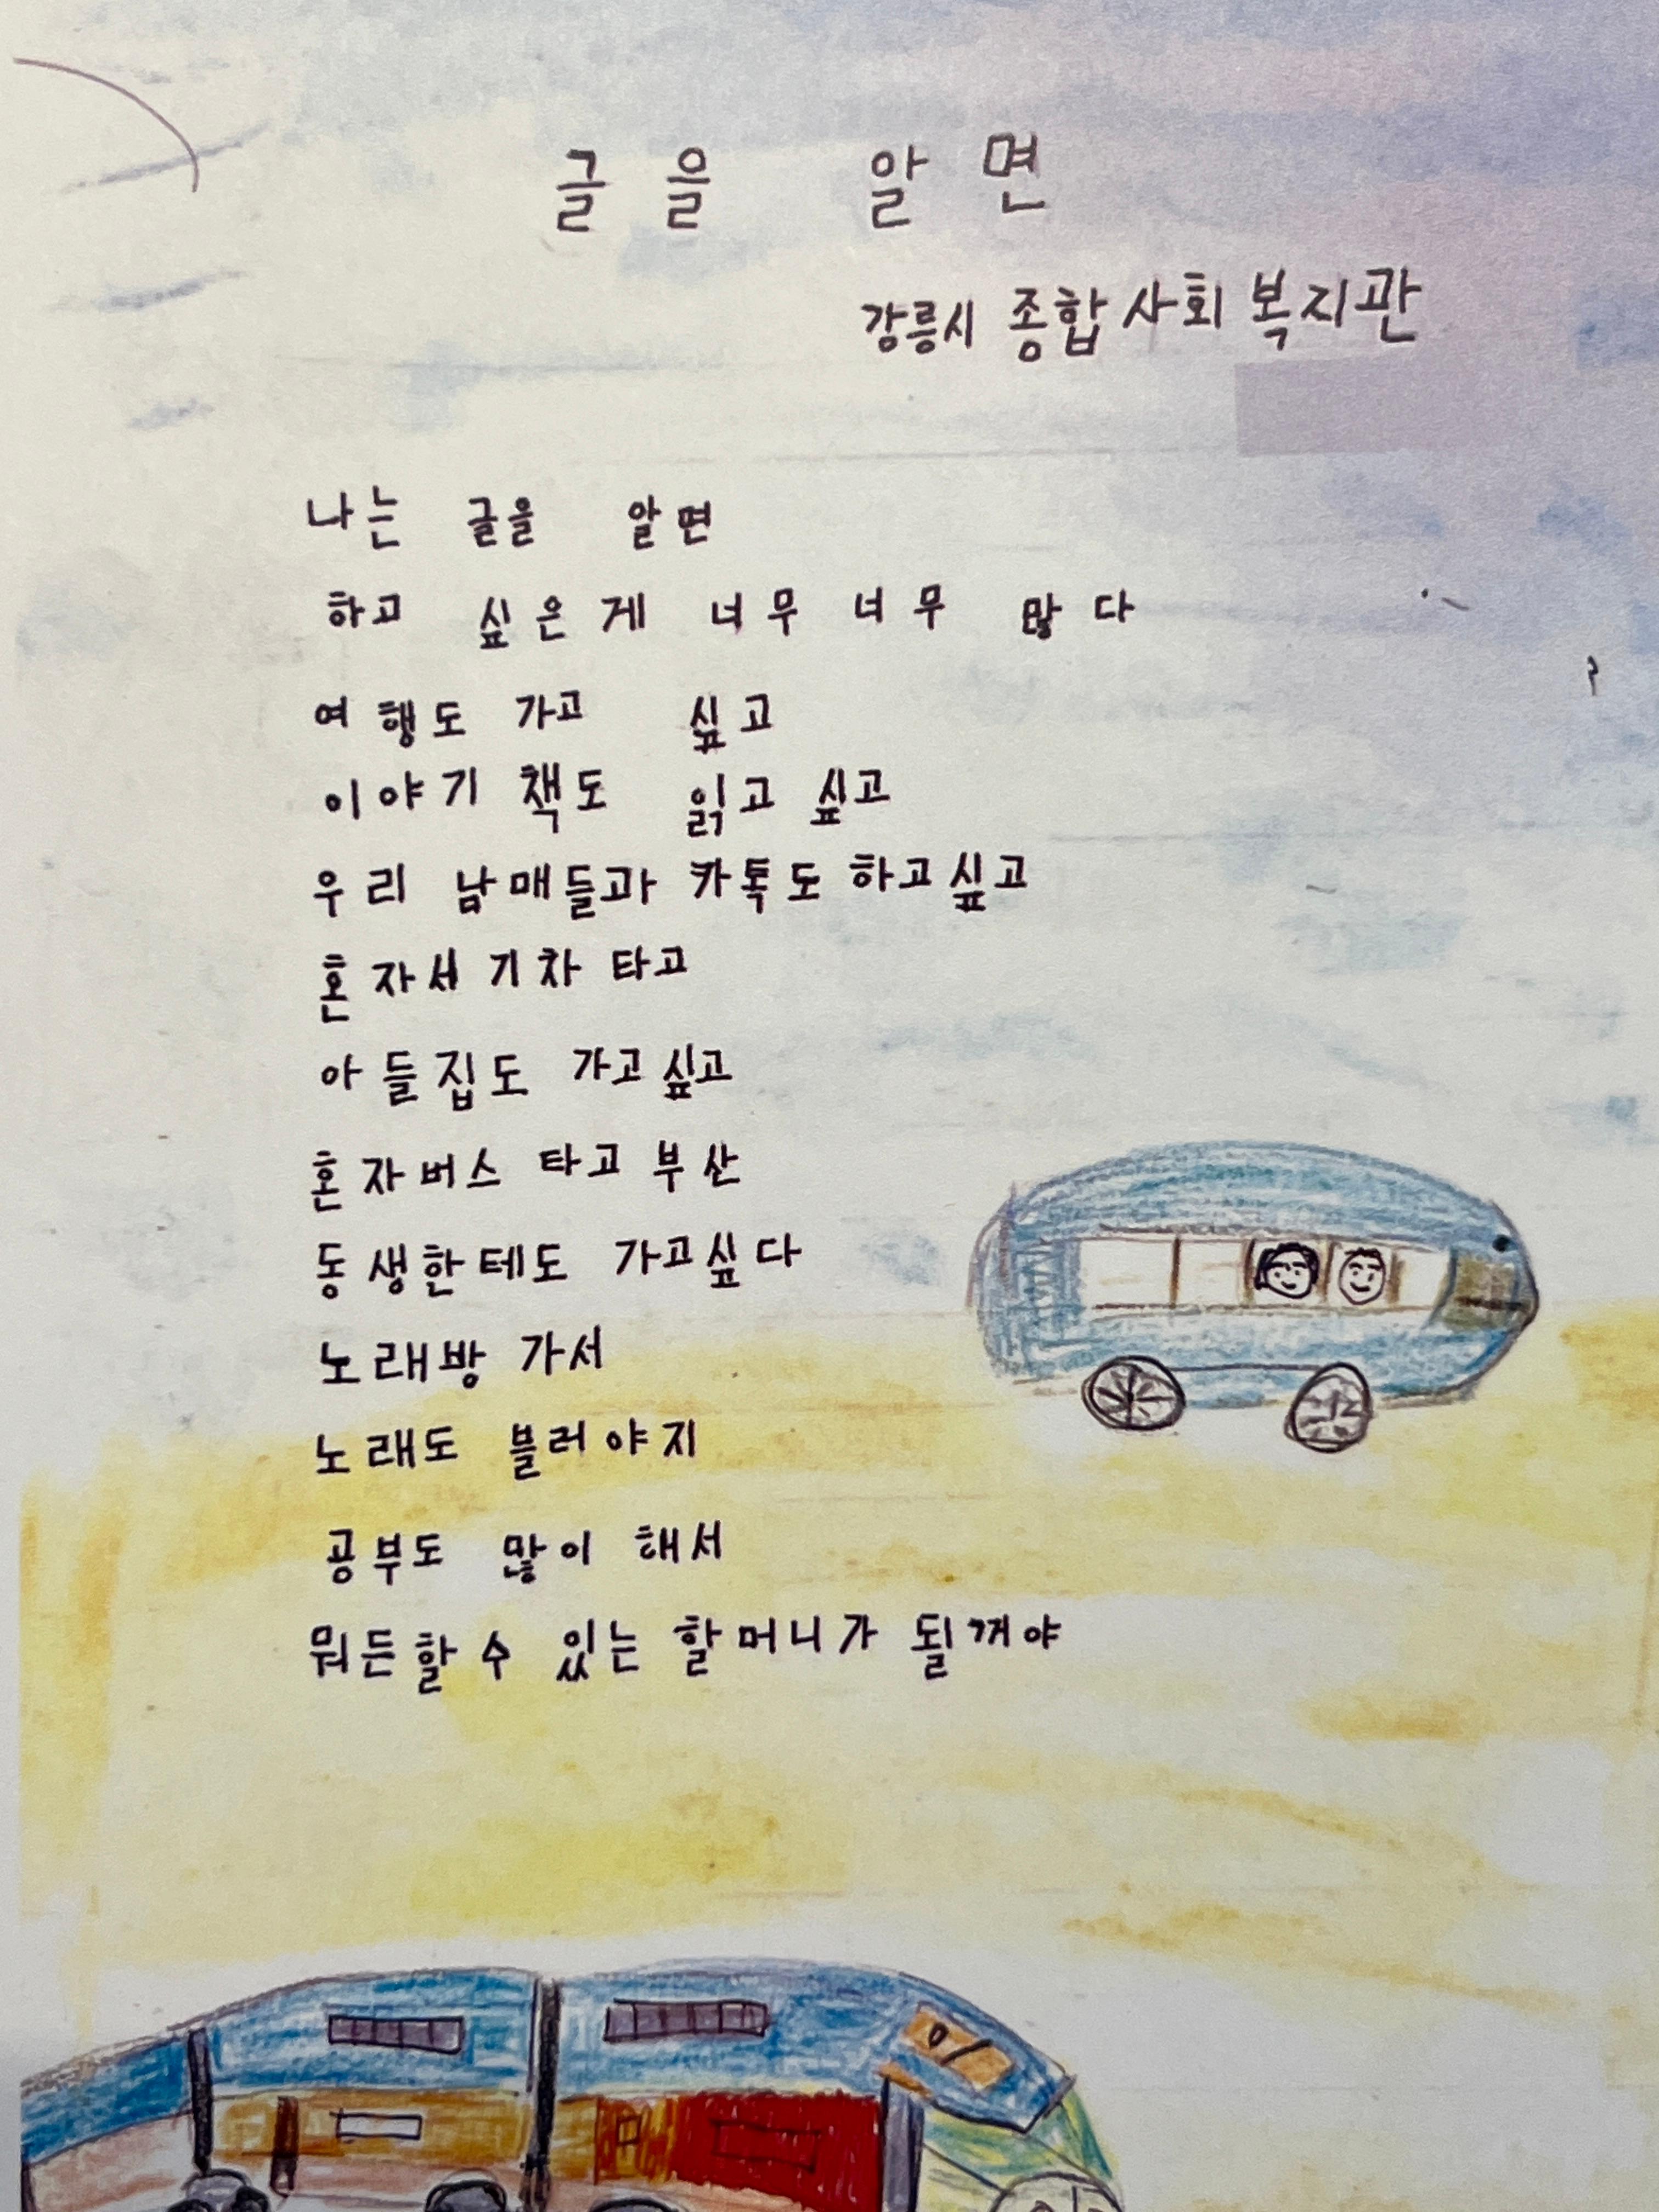 글을 알면
강릉시 종합사회복지관
나는 글을 알면
하고 싶은게 너무 너무 많다
여행도 가고 싶고
이야기 책도 읽고 싶고
우리 남매들과 카톡도 하고싶고
혼자서 기차 타고
아들집도 가고싶고
혼자버스 타고 부산
동생한테도 가고싶다
노래방 가서
노래도 블러야지
공부도 많이 해서
뭐든할 수 있는 할머니가 될꺼야